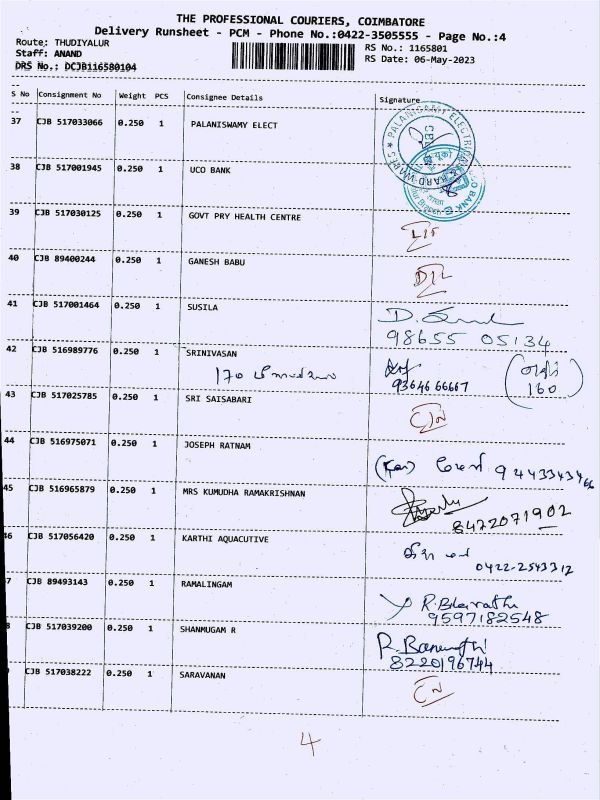 THE PROFESSIONAL COURIERS, COIMBATORE
Delivery Runsheet - PCM - Phone No.:0422-3505555 - Page No.:4
Route: THUDIYALUR
RS No.: 1165801
Staff: ANAND
RS Date: 06-May-2023
DRS No.: DCJB116580104
S No Consignment No Weight PCS Consignee Details Signature
37 CJB 517033066 0.250 1 PALANISWAMY ELECT
38 CJB 517001945 0.250 1 UCO BANK
39 CJB 517030125 0.250 1 GOVT PRY HEALTH CENTRE
40 CJB 89400244 0.250 1 GANESH BABU
41 CJB 517001464 0.250 1 SUSILA
98655 05134
42 CJB 516989776 0.250 1 SRINIVASAN
170
9364666667
160
43 CJB 517025785 0.250 1 SRI SAISABARI
44 CJB 516975071 0.250 1 JOSEPH RATNAM
45 CJB 516965879 0.250 1 MRS KUMUDHA RAMAKRISHNAN
8472071902
46 CJB 517056420 0.250 1 KARTHI AQUACUTIVE
0422-2543312
7 CJB 89493143 0.250 1 RAMALINGAM
R. Bharathi
9597182548
8 CJB 517039200 0.250 1 SHANMUGAM R
R. Banumathi
8220196744
CJB 517038222 0.250 1 SARAVANAN
4